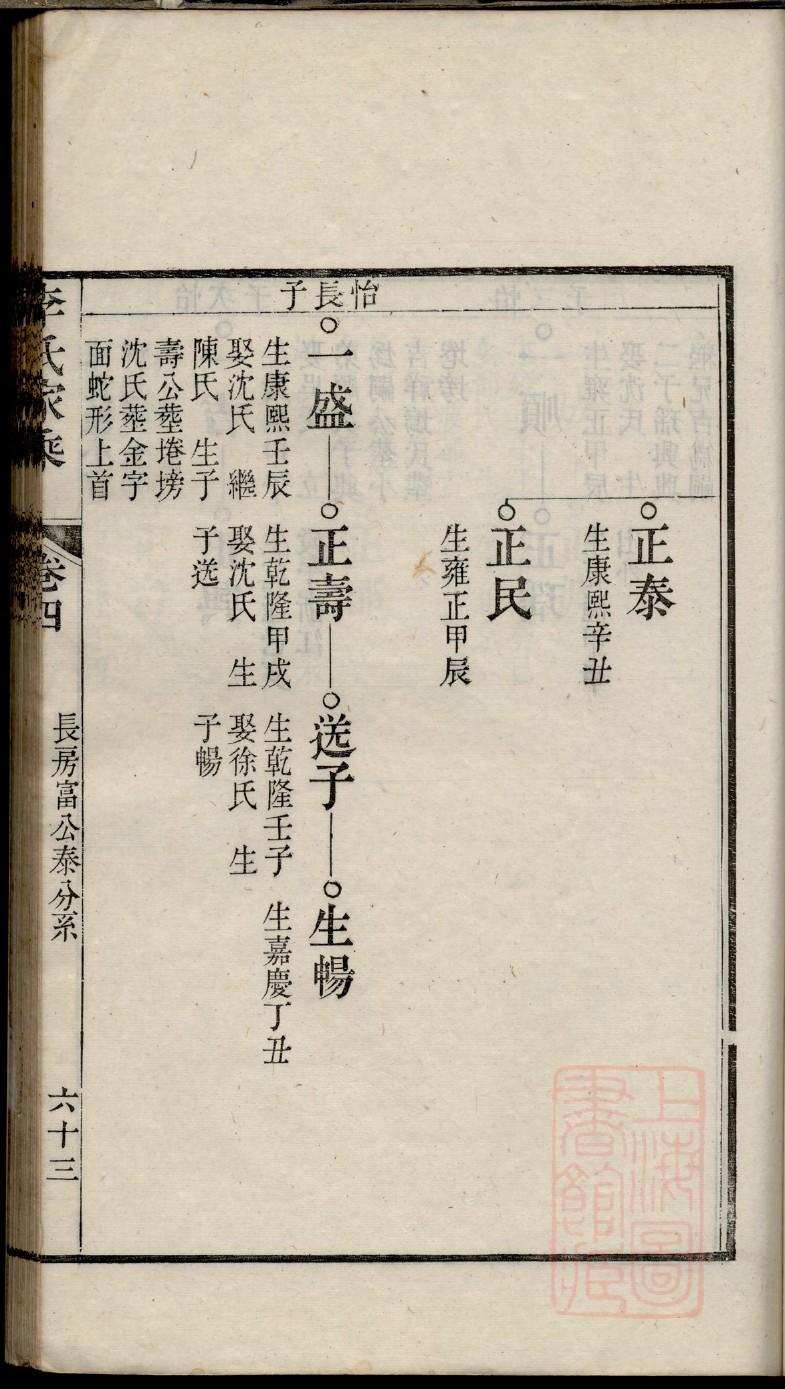 正泰
生康熙辛丑
正民
生雍正甲辰
怡長子
一盛
生康熙壬辰
娶沈氏　繼
陳氏　生子
壽公塟埢塝
沈氏塟金字
面蛇形上首
正壽
生乾隆甲戌
娶沈氏　生
子送
送子
生乾隆壬子
娶徐氏　生
子暢
生暢
生嘉慶丁丑
李氏家乘
卷四
長房富公泰分系
六十三
上海圖
書館藏